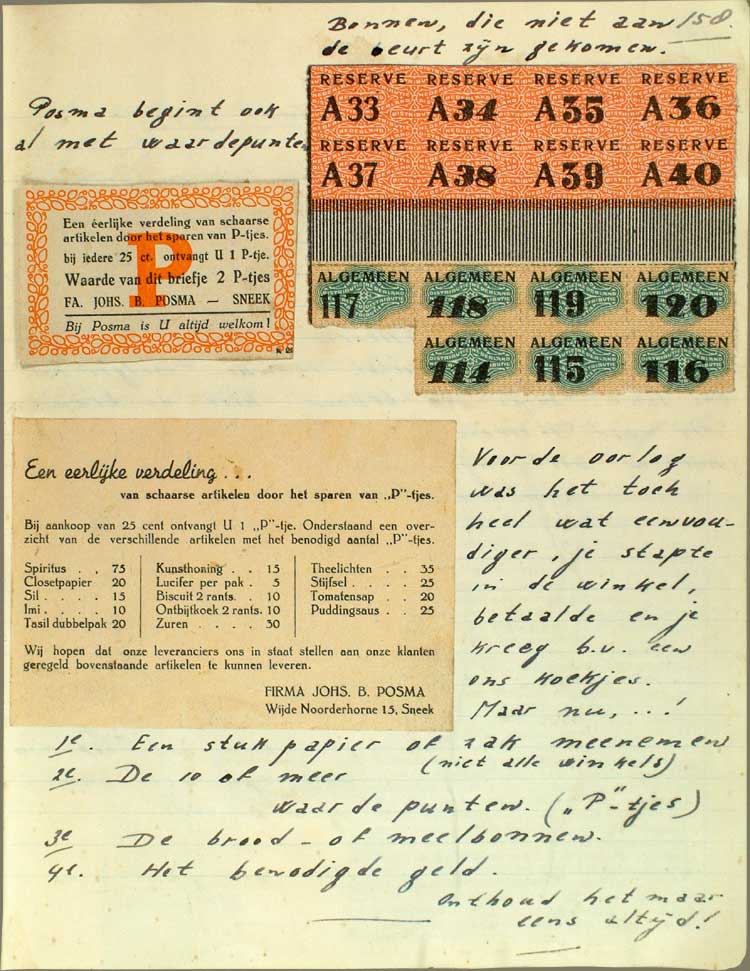 Bonnen, die niet aan 158.
de beurt zijn gekomen.
Posma begint ook
al met waardepunten
RESERVE RESERVE RESERVE RESERVE
A33 A34 A35 A36
RESERVE RESERVE RESERVE RESERVE
A37 A38 A39 A40
ALGEMEEN ALGEMEEN ALGEMEEN ALGEMEEN
117 118 119 120
ALGEMEEN ALGEMEEN ALGEMEEN
114 115 116
Een éerlijke verdeling van schaarse
artikelen door het sparen van P-tjes.
bij iedere 25 ct. ontvangt U 1 P-tje.
Waarde van dit briefje 2 P-tjes
FA. JOHS. B. POSMA — SNEEK
Bij Posma is U altijd welkom!
P
Een eerlijke verdeling...
van schaarse artikelen door het sparen van „P”-tjes.
Bij aankoop van 25 cent ontvangt U 1 „P”-tje. Onderstaand een over-
zicht van de verschillende artikelen met het benodigd aantal „P”-tjes.
Spiritus . . 75
Closetpapier 20
Sil . . . . 15
Imi . . . . 10
Tasil dubbelpak 20
Kunsthoning . . 15
Lucifer per pak . 5
Biscuit 2 rants. . 10
Ontbijtkoek 2 rants. 10
Zuren . . . . 30
Theelichten . . 35
Stijfsel . . . . 25
Tomatensap . . 20
Puddingsaus . . 25
Wij hopen dat onze leveranciers ons in staat stellen aan onze klanten
geregeld bovenstaande artikelen te kunnen leveren.
FIRMA JOHS. B. POSMA
Wijde Noorderhorne 15, Sneek
Voor de oorlog
was het toch
heel wat eenvou-
diger, je stapte
in de winkel,
betaalde en je
kreeg b.v. een
ons koekjes.
Maar nu, ...!
1e. Een stuk papier of zak meenemen
(niet alle winkels)
2e. De 10 of meer
waarde punten. („P”-tjes)
3e De brood- of meelbonnen.
4e. Het benodigde geld.
Onthoud het maar
eens altijd!